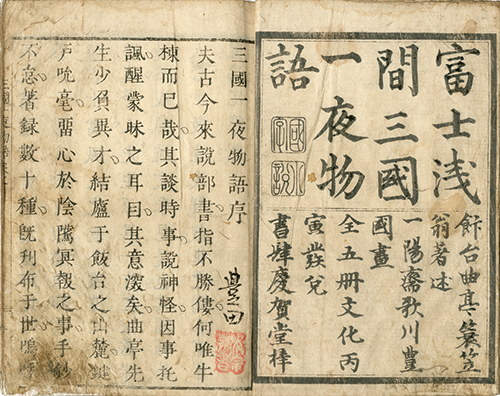 富士浅
間三國
一夜物
語
飰台曲亭蓑笠
翁著述
一陽齋歌川豊
國畫
全五册文化丙
寅發兌
書肆慶賀堂梓
豊田
三國一夜物語序
夫古今來說部書指不勝僂何唯牛
棟而已哉其談時事說神怪因事托
諷醒蒙昧之耳目其意矣曲亭先
生少負異才結廬于飯台之山麓鍵
戶吮毫畱心於陰隲冥報之事手鈔
不怠著録數十種既刊布于世嗚呼